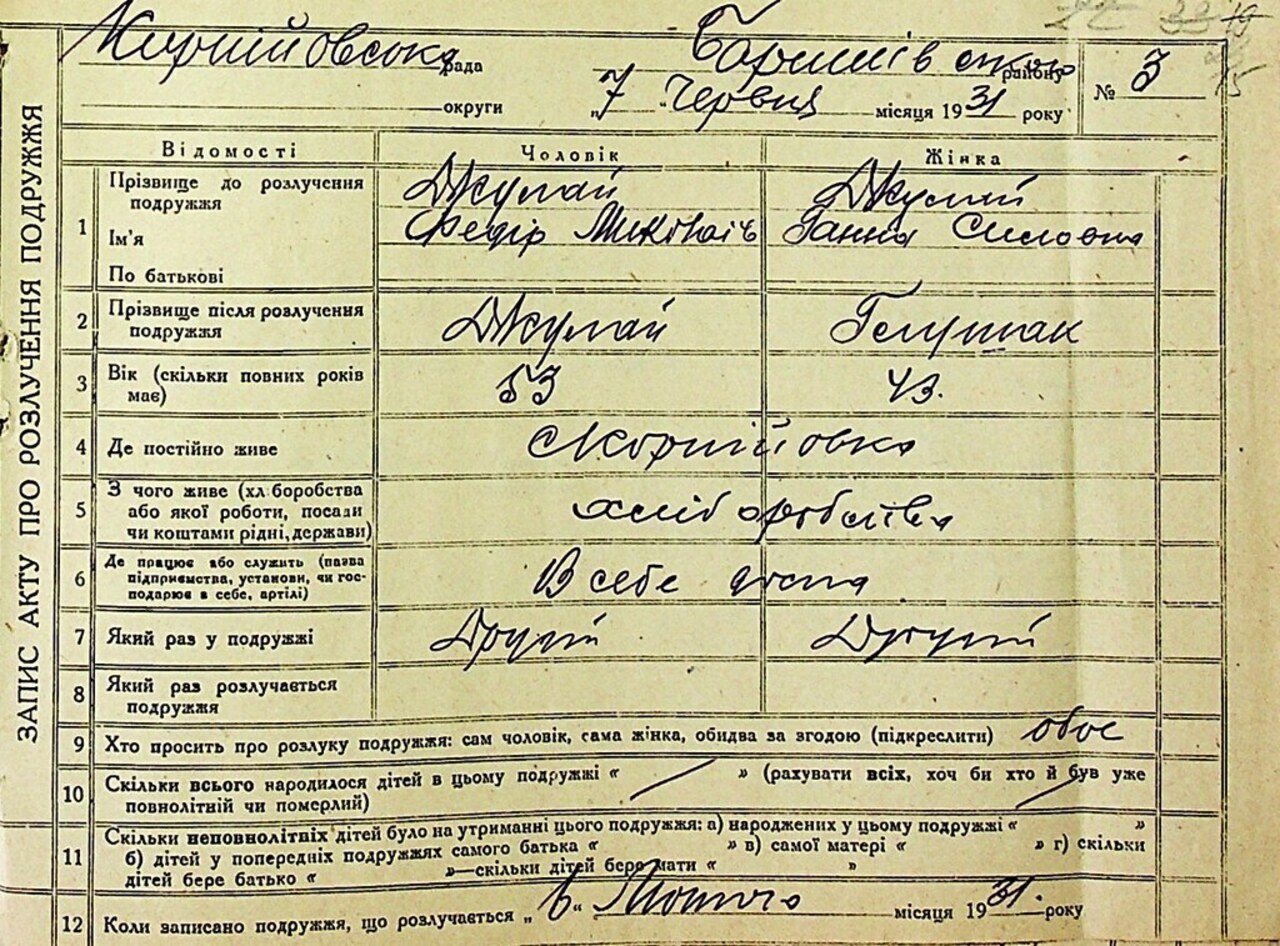 ЗАПИС АКТУ ПРО РОЗЛУЧЕННЯ ПОДРУЖЖЯ
рада району № 3
округи „7 “ Червця місяця 1931 року
Відомості Чоловік Жінка
1 Прізвище до розлучення подружжя Джулай Джулай
Ім'я Федір Ганна
По батькові
2 Прізвище після розлучення подружжя Джулай
3 Вік (скільки повних років має) 53 43.
4 Де постійно живе
5 З чого живе (хліборобства або якої роботи, посади чи коштами рідні, держави) хліборобства
6 Де працює або служить (назва підприємства, установи, чи господарює в себе, артілі) В себе дома
7 Який раз у подружжі Другий Другий
8 Який раз розлучається подружжя
9 Хто просить про розлуку подружжя: сам чоловік, сама жінка, обидва за згодою (підкреслити) обоє
10 Скільки всього народилося дітей в цьому подружжі « » (рахувати всіх, хоч би хто й був уже
повнолітній чи померлий)
11 Скільки неповнолітніх дітей було на утриманні цього подружжя: а) народжених у цьому подружжі « »
б) дітей у попередніх подружжях самого батька « » в) самої матері « » г) скільки
дітей бере батько « »—скільки дітей бере мати « »
12 Коли записано подружжя, що розлучається „ “ Лютого місяця 1931. року